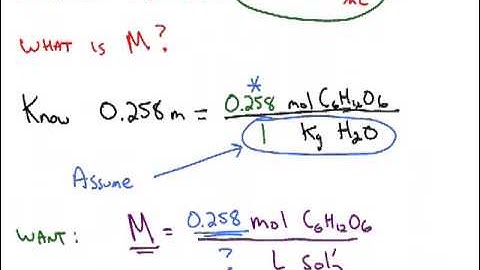 mL
WHAT IS M?
*
Know 0.258 m = 0.258 mol C6H12O6
1 Kg H2O
Assume
WANT: M = 0.258 mol C6H12O6
? L sol'n